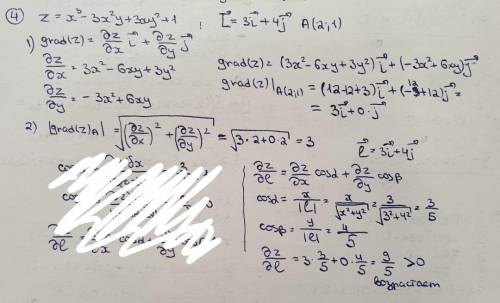 ④ z = x³ - 3x²y + 3xy² + 1 ; l⃗ = 3i⃗ + 4j⃗ A(2;1)
1) grad(z) = ∂z/∂x i⃗ + ∂z/∂y j⃗
∂z/∂x = 3x² - 6xy + 3y²
∂z/∂y = -3x² + 6xy
grad(z) = (3x² - 6xy + 3y²) i⃗ + (-3x² + 6xy) j⃗
grad(z)|A(2;1) = (12 - 12 + 3) i⃗ + (-12 + 12) j⃗ =
= 3i⃗ + 0·j⃗
2) |grad(z)A| = √((∂z/∂x)² + (∂z/∂y)²) = √(3·2 + 0·2) = 3
l⃗ = 3i⃗ + 4j⃗
∂z/∂l = ∂z/∂x cosα + ∂z/∂y cosβ
cosα = x/|l| = x/√(x² + y²) = 3/√(3² + 4²) = 3/5
cosβ = y/|l| = 4/5
∂z/∂l = 3·3/5 + 0·4/5 = 9/5 > 0
возрастает